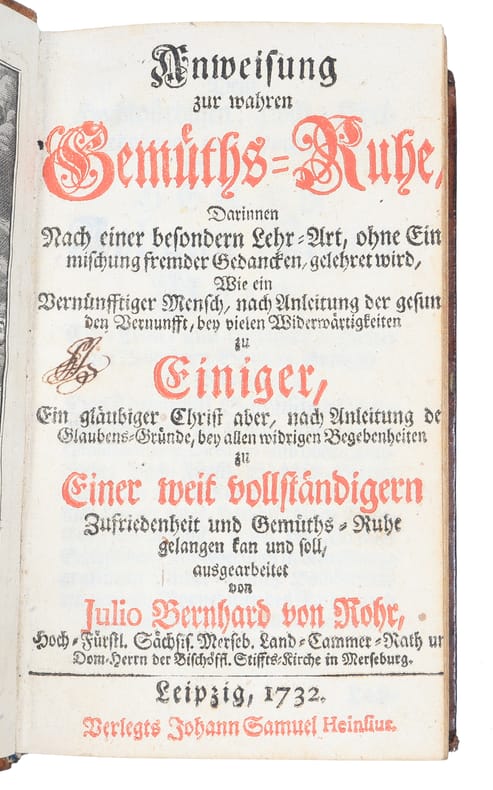 Anweisung
zur wahren
Gemüths-Ruhe,
Darinnen
Nach einer besondern Lehr-Art, ohne Ein
mischung fremder Gedancken, gelehret wird,
Wie ein
Vernünfftiger Mensch, nach Anleitung der gesun
den Vernunfft, bey vielen Widerwärtigkeiten
zu
Einiger,
Ein gläubiger Christ aber, nach Anleitung de
Glaubens-Gründe, bey allen widrigen Begebenheiten
zu
Einer weit vollständigern
Zufriedenheit und Gemüths-Ruhe
gelangen kan und soll,
ausgearbeitet
von
Julio Bernhard von Rohr,
Hoch-Fürstl. Sächsis. Merseb. Land-Cammer-Rath un
Dom-Herrn der Bischöffl. Stiffts-Kirche in Merseburg.
Leipzig, 1732.
Verlegts Johann Samuel Heinsius.